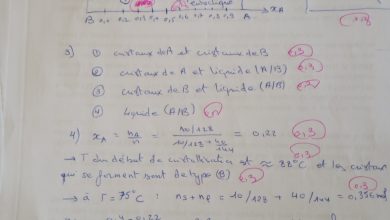 l'eutectique
B 0,1 0,2 0,3 0,4 0,5 0,6 0,7 0,8 0,9 A xA
3) ① cristaux de A et cristaux de B 0,3
② cristaux de A et liquide (A/B) 0,3
③ cristaux de B et liquide (A/B)
④ liquide (A/B)
4) xA = nA/n = 10/128 / 10/128 + 40/144 = 0,22 0,3
→ T du début de cristallisation est ≈ 82°C et les cristaux
qui se forment sont de type (B) 0,3 0,3
→ à T = 75°C : ns + nl = 10/128 + 40/144 = 0,356 mol
0,4 - 0,22